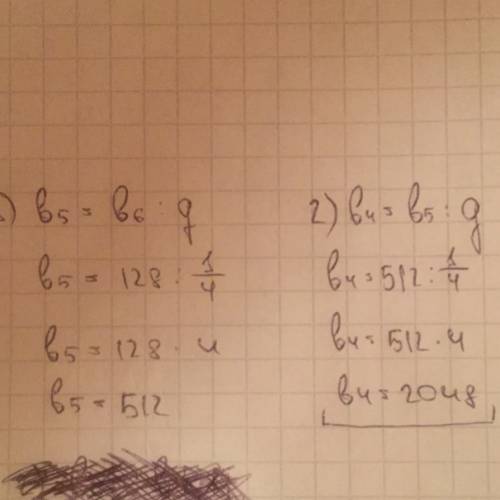 ) b₅ = b₆ : q
b₅ = 128 : 1/4
b₅ = 128 · 4
b₅ = 512
2) b₄ = b₅ : q
b₄ = 512 : 1/4
b₄ = 512 · 4
b₄ = 2048